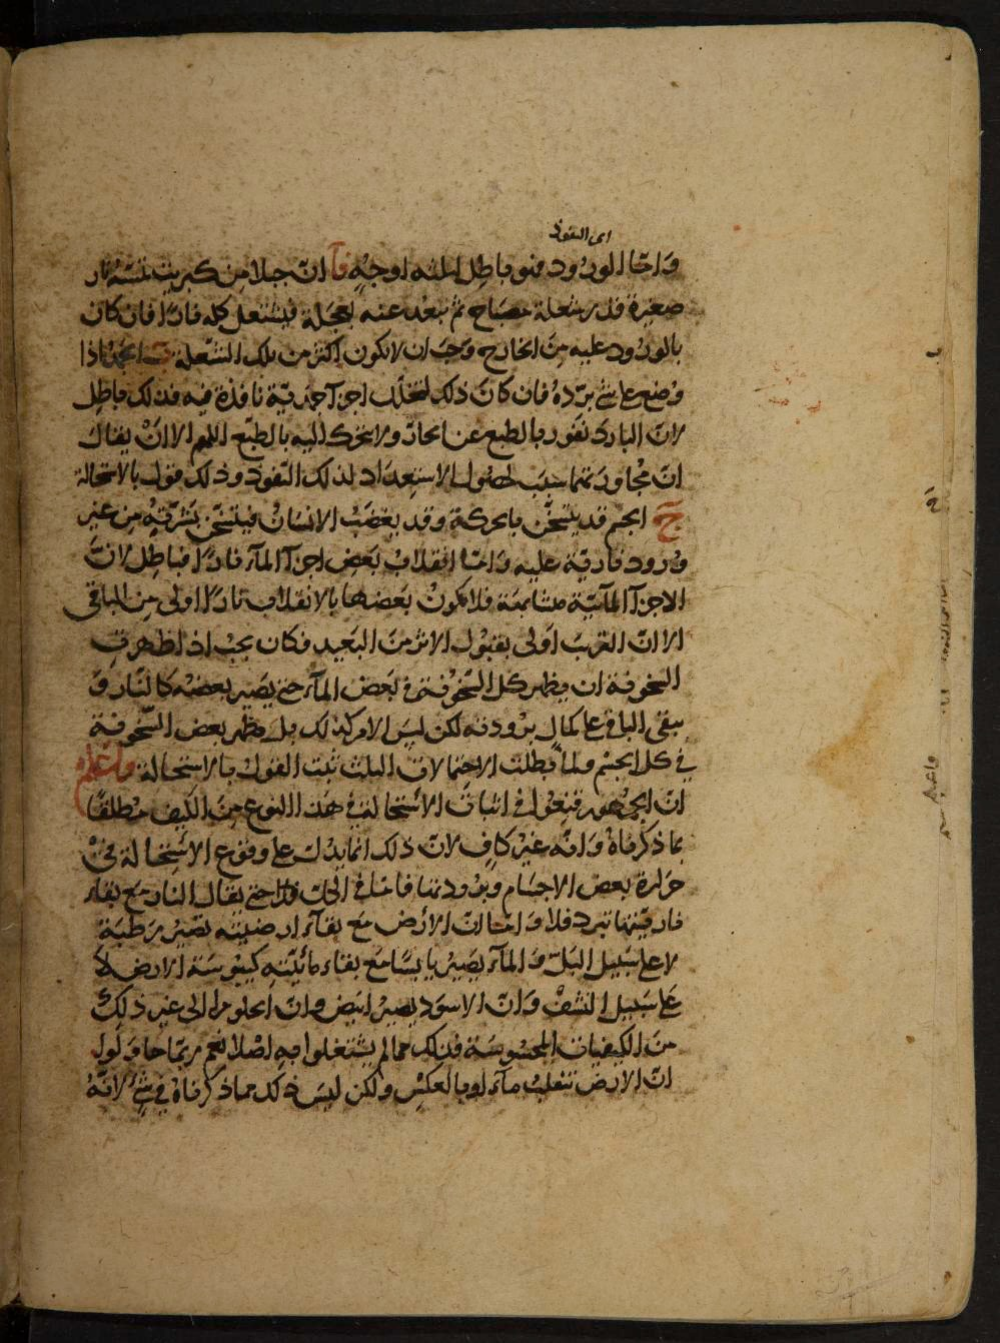 اى النفوذ
وَامّا الورُود فهو باطِل لثلثه اوجُهٍ آ انّ جبلا مِن كبريت تمسّه نار
صغيرة قدر شعلة مصباح ثم تبعد عنه بعَجَلة فيشتعل كله نارًا فان كان
بالورُود عليه مِنَ الخارج وَجبَ ان لا يكون اكثر من تلك الشعلة بَ الجمد اذا
وُضِع على شئ برّدهُ فان كانَ ذلك لتخلل اجزآ جمديّة نافذة فيه فذلك باطِل
لانّ البارد نفور بالطبع عن الحارّ ولا يتحرك اليه بالطبع اللهم الا انْ يقال
انّ مجاورَتهما سبَب لحصُول الاستعداد لذلك النفوذ وذلك قول بالاستحالة
جَ الجسم قد يتسخّن بالحركة وقد يغضَبُ الانسانُ فيتسخّن بَشرَتهُ مِن غير
وُرود ناريّة عليه وَامّا انقلابُ بَعض اجزآ المآء نارًا فباطِل لانّ
الاجزآ المآئيّة متشابهَة فلا يكون بَعضها بالانقلاب نارًا اولى مِن الباقى
الا انّ القريبَ اَولى بقبُول الاثر مِنَ البَعيد فكان يجبُ اذا ظهرت
السخونة ان يظهر كل السّخُونة فى بَعض المآء حتى يَصير بعضهُ كالنّار وَ
يبقى الباقى على كمال برُودته لكن ليسَ الامر كذلك بل يظهر بعض السّخونة
فى كل الجسْم ولمّا بَطلت الاحتمالات الثلث ثبت القول بالاستحالة وَاعْلم
انّ الجمْهور قنِعُوا فى اثبات الاستحالة فى هذا النوع مِنَ الكيف مُطلقًا
بما ذكرناهُ وَانّه غيرُ كافٍ لانّ ذلك انما يدل على وقوع الاستحالة فى
حرارة بعض الاجسَام وبرُودتها فامّا فى الكل فلا حتى يقال النار مع بقاء
ناريّتها تبرد فلا وَامّا انّ الارض مَع بقآء ارضيته تصيرُ رَطبَة
لا على سَبيل البَلّ وَالمآء يَصيرُ يابسًا مَع بقاء مائيّته كيبُوسَة الارض لا
عَلى سَبيل النشفْ وَانّ الاسوَد يصيرُ ابيَض وانّ الحلو مرا الى غير ذلِكَ
منَ الكيفيات المحسُوسَة فذلك مما لم يشتغلوا به اصْلا نعم ربّما حاولوا
انّ الارضَ تنقلبُ مآءً او بالعكس ولكن ليسَ ذلك مما ذكرناهُ فى شئٍ لانّهُ